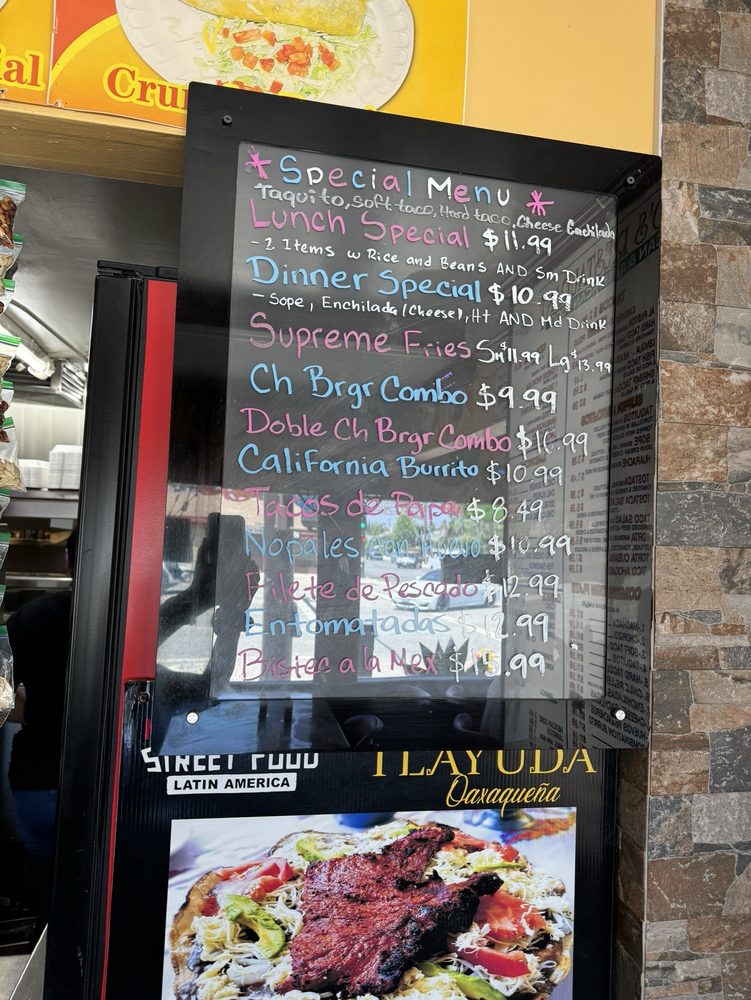 ial
Cru
* Special Menu *
Taquito, soft taco, Hard taco, Cheese Enchilada
Lunch Special $11.99
- 2 Items w Rice and Beans AND Sm Drink
Dinner Special $10.99
- Sope, Enchilada (Cheese), Ht AND Md Drink
Supreme Fries Sm $11.99 Lg $13.99
Ch Brgr Combo $9.99
Doble Ch Brgr Combo
California Burrito $10.99
Tacos de Papa $8.49
Nopales con Huevo $10.99
Filete de Pescado $12.99
Entomatadas $12.99
Bistec a la Mex
STREET FOOD
LATIN AMERICA
TLAYUDA
Oaxaqueña